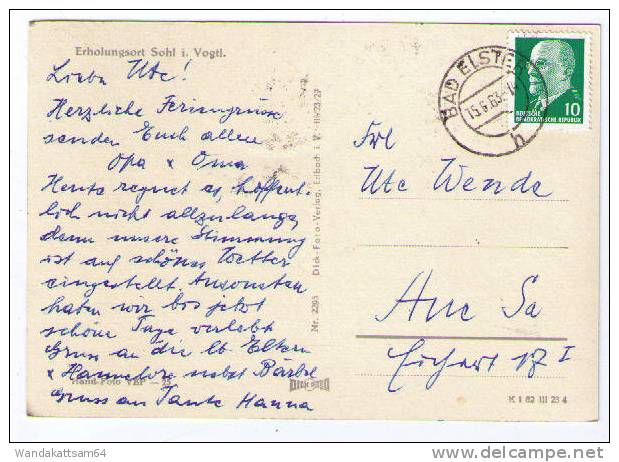 Erholungsort Sohl i. Vogtl.
Liebe Ute!
Herzliche Feriengrüsse
senden Euch allen
Opa + Oma
Heute regnet es, hoffent-
lich nicht allzulange,
denn unsere Stimmung
ist auf schönes Wetter
eingestellt. Ansonsten
haben wir bis jetzt
schöne Tage verlebt
Gruss an die lb Eltern
+ Hannelore nebst Bärbel
Hand-Foto VEP — 25
Gruss an Tante Hanna
Nr. 2293 Dick-Foto-Verlag, Erlbach i. V. III/23/27
DICK FOTO
BAD ELSTER
15.6.63
h
10
DEUTSCHE
DEMOKRATISCHE REPUBLIK
Frl
Ute Wende
Aue Sa
I
K 1 82 III 23 4
Wandakattsam64
delcampe.net